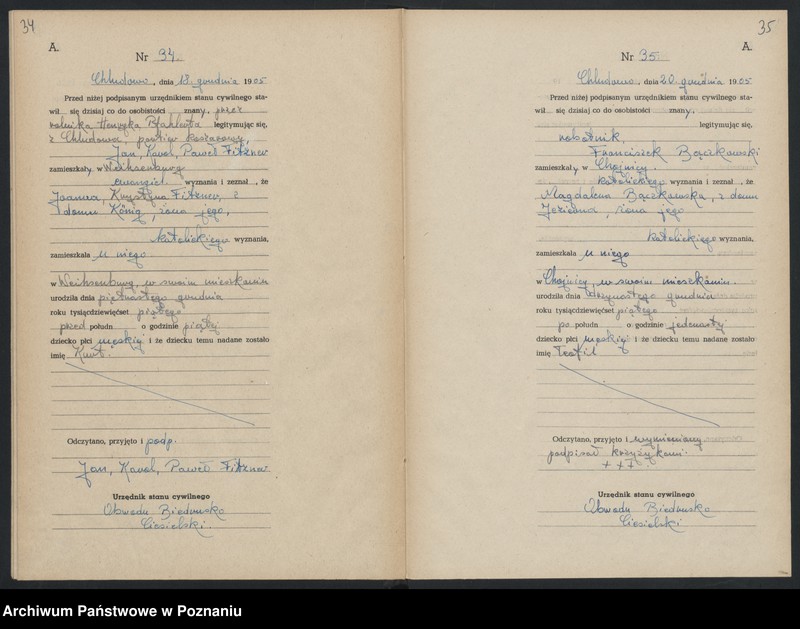 34
A.
Nr 34.
Chludowo, dnia 18. grudnia 1905
Przed niżej podpisanym urzędnikiem stanu cywilnego sta-
wił się dzisiaj co do osobistości znany, przez
rolnika Henryka Pfahlerta legitymując się,
z Chludowa,
Jan, Karol, Paweł Fitzner
zamieszkały w Weihsenburg
ewangiel. wyznania i zeznał, że
Joanna, Krystyna Fitzner, z
domu König, żona jego,
katolickiego wyznania,
zamieszkała u niego
w Weihsenburg, w swoim mieszkaniu
urodziła dnia piętnastego grudnia
roku tysiącdziewięćset piątego
przed południ o godzinie piątej
dziecko płci męskiej i że dziecku temu nadane zostało
imię Kurt.
Odczytano, przyjęto i podp.
Jan, Karol, Paweł Fitzner
Urzędnik stanu cywilnego
Obwodu Biedrusko
Ciesielski
35
A.
Nr 35
Chludowo, dnia 20. grudnia 1905
Przed niżej podpisanym urzędnikiem stanu cywilnego sta-
wił się dzisiaj co do osobistości znany,
legitymując się,
robotnik,
Franciszek Bączkowski
zamieszkały w Chojnicy,
katolickiego wyznania i zeznał, że
Magdalena Bączkowska, z domu
żona jego
katolickiego wyznania,
zamieszkała u niego
w Chojnicy, w swoim mieszkaniu.
urodziła dnia grudnia
roku tysiącdziewięćset piątego
po południ o godzinie jedenastej
dziecko płci męskiej i że dziecku temu nadane zostało
imię Teofil
Odczytano, przyjęto i wymieniony
podpisał krzyżykami.
+ + +
Urzędnik stanu cywilnego
Obwodu Biedrusko
Ciesielski
Archiwum Państwowe w Poznaniu